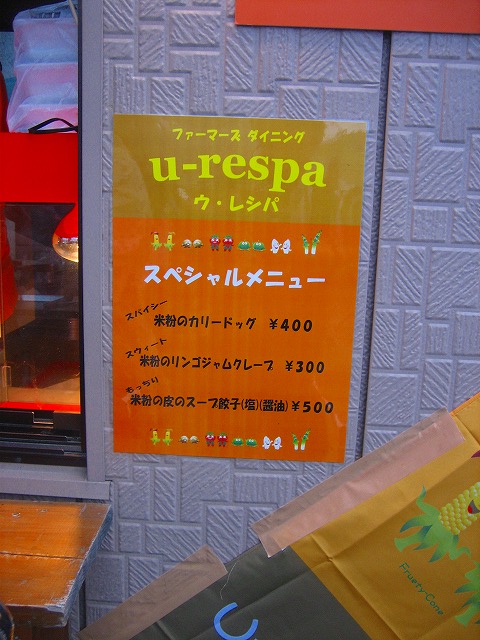 ファーマーズ ダイニング
u-respa
ウ・レシパ
スペシャルメニュー
スパイシー
米粉のカリードッグ ¥400
スウィート
米粉のリンゴジャムクレープ ¥300
もっちり
米粉の皮のスープ餃子(塩)(醤油) ¥500
Fruety-Cone